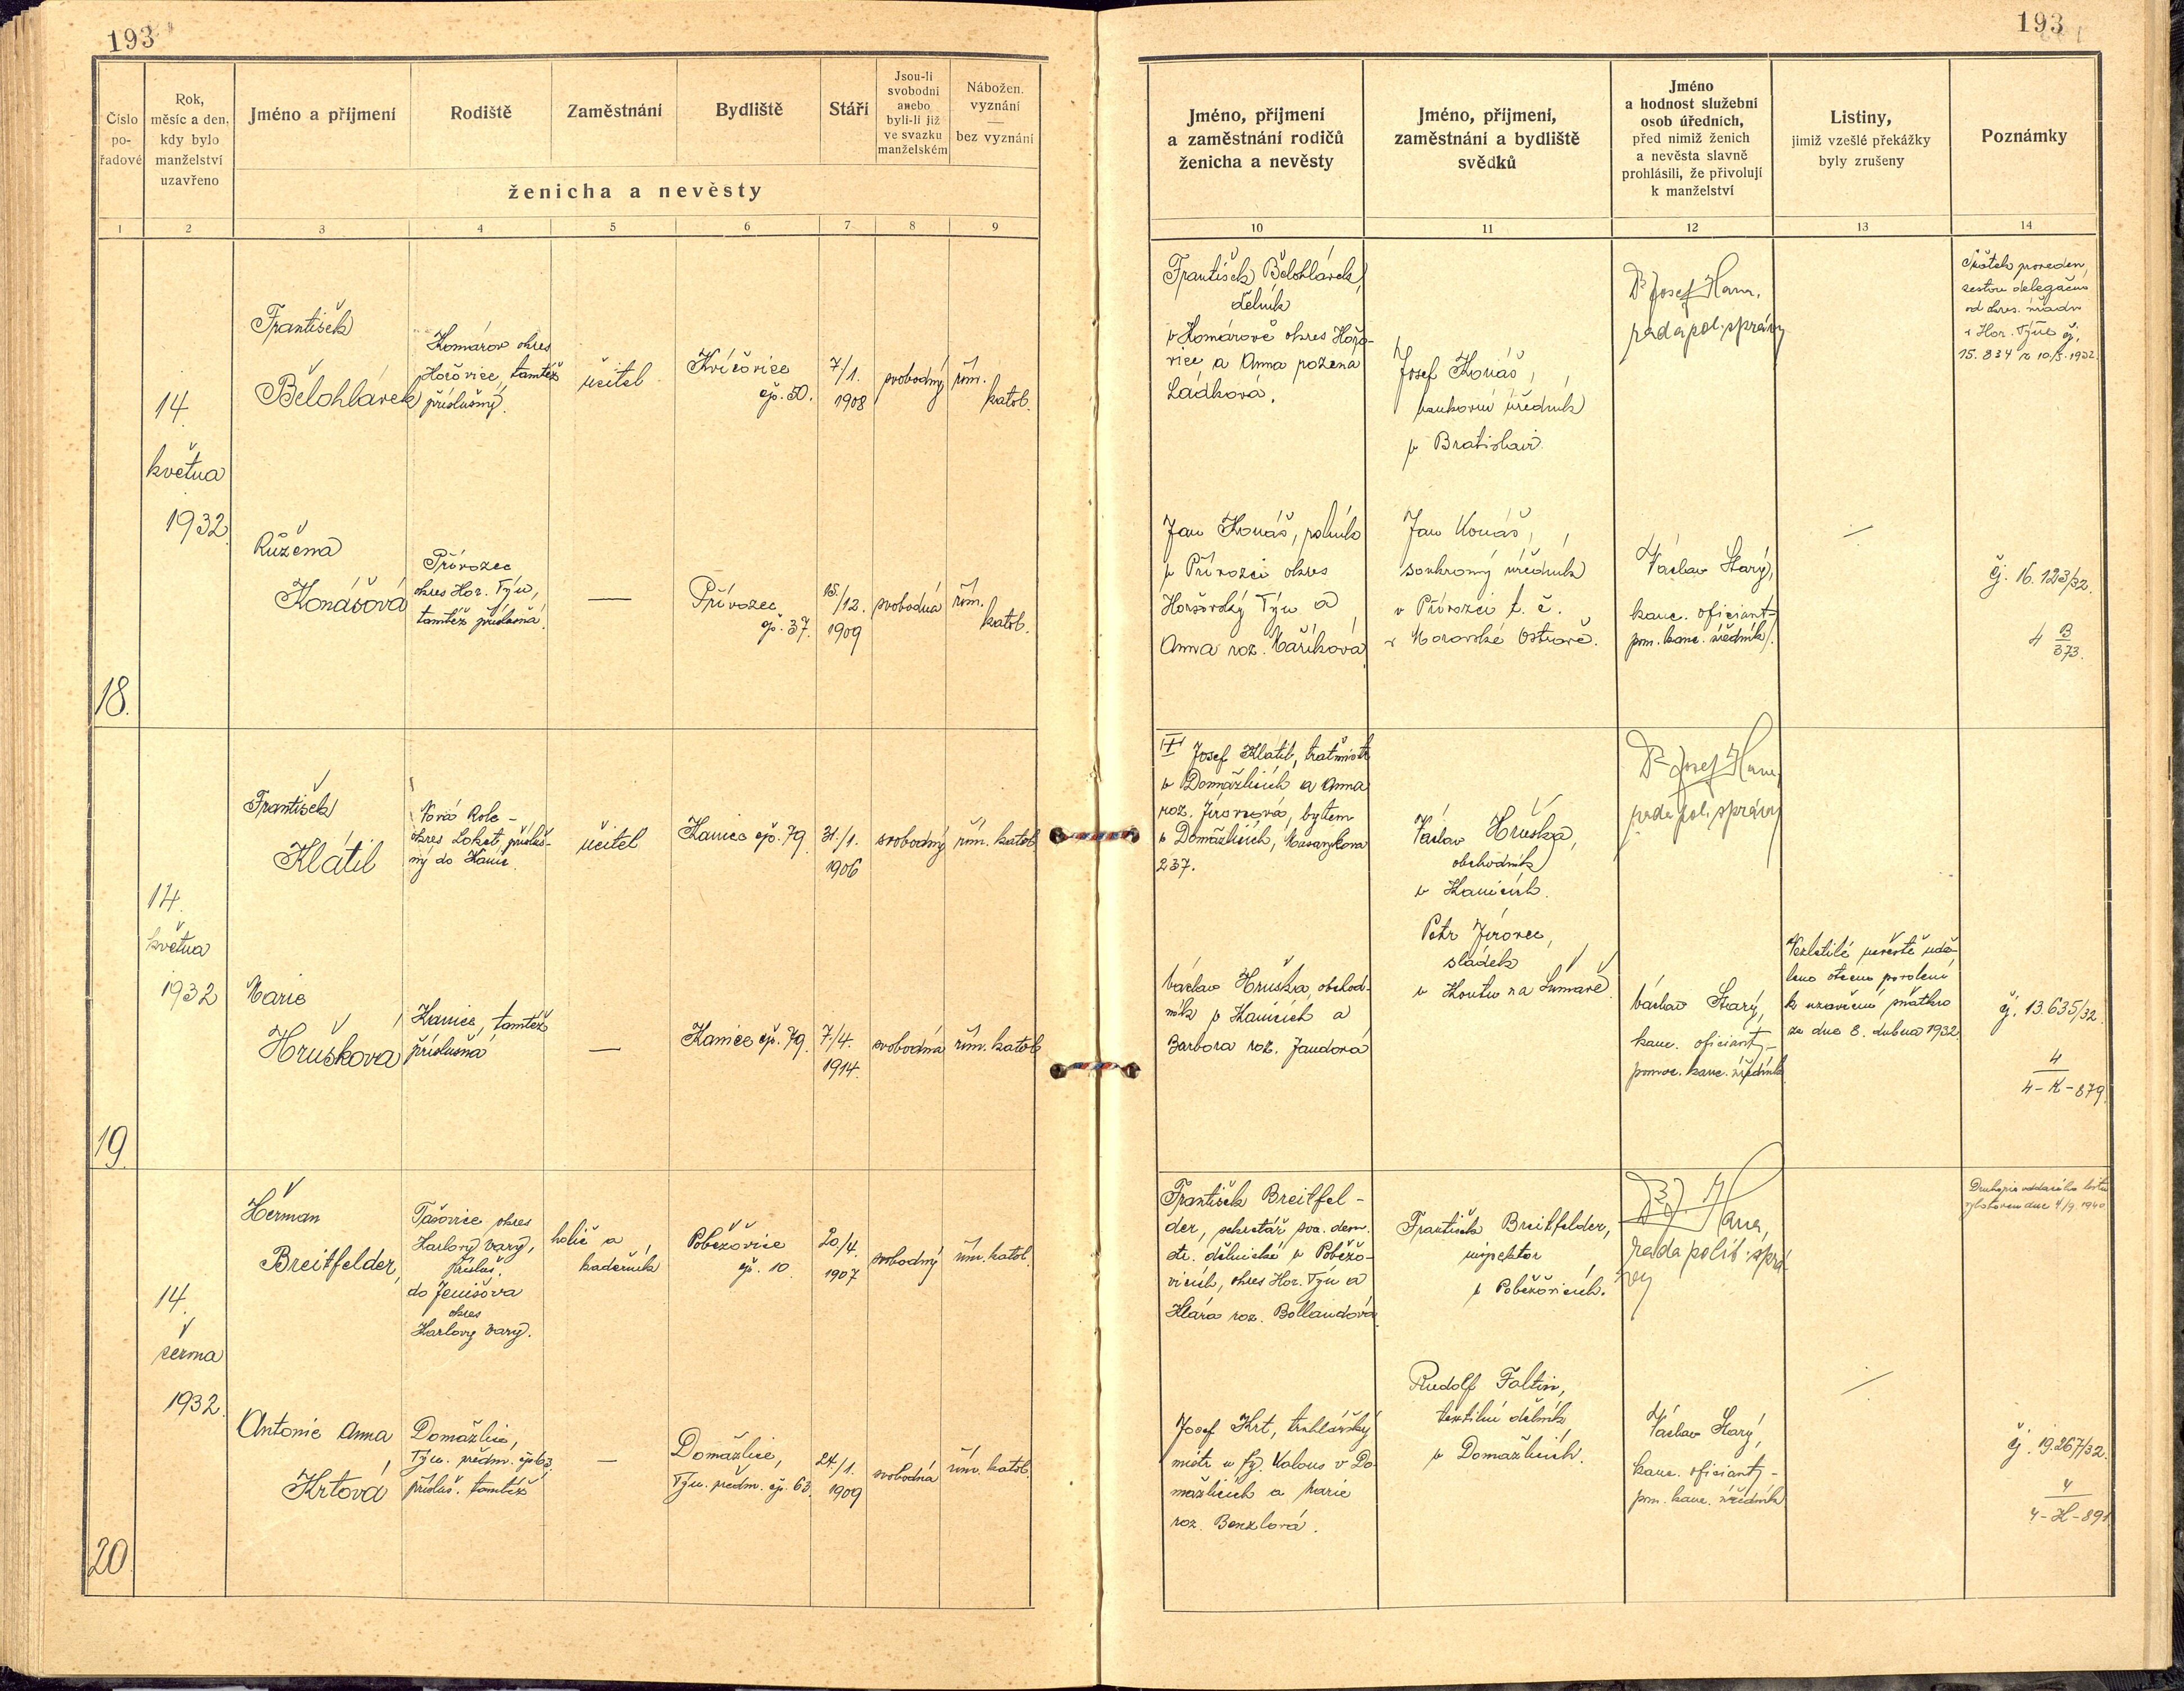 193
193
Číslo pořadové
Rok, měsíc a den, kdy bylo manželství uzavřeno
Jméno a příjmení
Rodiště
Zaměstnání
Bydliště
Stáří
Jsou-li svobodni anebo byli-li již ve svazku manželském
Nábožen. vyznání — bez vyznání
ženicha a nevěsty
Jméno, příjmení a zaměstnání rodičů ženicha a nevěsty
Jméno, příjmení, zaměstnání a bydliště svědků
Jméno a hodnost služební osob úředních, před nimiž ženich a nevěsta slavně prohlásili, že přivolují k manželství
Listiny, jimiž vzešlé překážky byly zrušeny
Poznámky
1 2 3 4 5 6 7 8 9 10 11 12 13 14
18.
14.
května
1932
František
Bělohlávek
Komárov okres
Hořovice, tamtéž
příslušný.
učitel
Kvíčovice
čp. 50.
7/1.
1908
svobodný
řím.
katol.
František Bělohlávek,
dělník
v Komárově okres Hořo-
vice, a Anna rozená
Ládková.
Josef Konáš,
bankovní úředník
v Bratislavě.
Dr Josef Hana,
rada pol. správy
Sňatek proveden
cestou delegační
od okres. úřadu
v Hor. Týně čj.
15.834 z 10/5. 1932.
Růžena
Konášová
Přívozec
okres Hor. Týn,
tamtéž příslušná.
—
Přívozec
čp. 37.
15./12.
1909
svobodná
řím.
katol.
Jan Konáš, rolník
v Přívozci okres
Horšovský Týn a
Anna roz. Maříková
Jan Konáš,
soukromý úředník
v Přívozci t. č.
v Moravské Ostravě.
Václav Starý,
kanc. oficiant-
pom. kanc. úředník.
—
čj. 16.123/32.
4 B/373.
19.
14.
května
1932
František
Klátil
Nová Role -
okres Loket, přísluš-
ný do Kanic.
učitel
Kanice čp. 79.
31./1.
1906
svobodný
řím. katol.
Josef Klátil, traťmistr
v Domažlicích a Anna
roz. Jírovcová, bytem
v Domažlicích, Masarykova
237.
Václav Hruška,
obchodník
v Kanicích.
Petr Jírovec,
sládek
v Koutu na Šumavě.
Dr Josef Hana,
rada pol. správy
Marie
Hrušková
Kanice, tamtéž
příslušná
—
Kanice čp. 79.
7./4.
1914.
svobodná
řím. katol.
Václav Hruška, obchod-
ník v Kanicích a
Barbora roz. Jandová
Václav Starý,
kanc. oficiant,-
pomoc. kanc. úředník
Nezletilé nevěstě udě-
leno otcem povolení
k uzavření sňatku
ze dne 8. dubna 1932.
čj. 13.635/32.
4
4-K-879.
20.
14.
června
1932.
Heřman
Breitfelder,
Tašovice okres
Karlovy Vary,
přísluš.
do Jenišova
okres
Karlovy Vary.
holič a
kadeřník
Poběžovice
čp. 10.
20./4.
1907
svobodný
řím. katol.
František Breitfel-
der, sekretář soc. dem.
str. dělnické v Poběžo-
vicích, okres Hor. Týn a
Klára roz. Bollandová
František Breitfelder,
inspektor
v Poběžovicích.
Dr J. Hana,
rada polit. sprá-
vy
Druhopis oddacího listu
vyhotoven dne 4/9. 1940
Antonie Anna
Krtová
Domažlice,
Týn. předm. čp 63,
přísluš. tamtéž
—
Domažlice,
Týn. předm. čp. 63.
24/1.
1909
svobodná
řím. katol.
Josef Krt, truhlářský
mistr u fy. Valous v Do-
mažlicích a Marie
roz. Benzlová.
Rudolf Faltin,
textilní dělník
v Domažlicích.
Václav Starý,
kanc. oficiant, -
pom. kanc. úředník
—
čj. 19.267/32.
4
4-H-891.